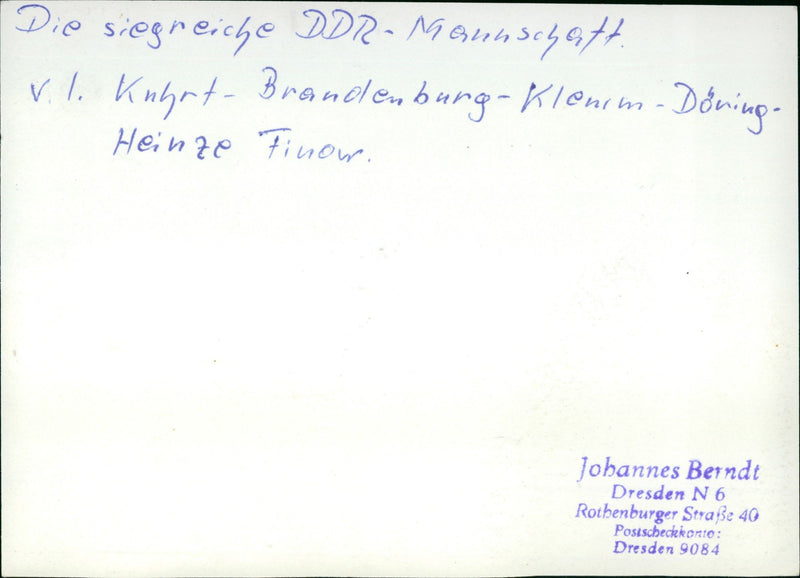 Die siegreiche DDR-Mannschaft.
v. l. Kuhrt - Brandenburg - Klemm - Döring -
Heinze Finow.
Johannes Berndt
Dresden N 6
Rothenburger Straße 40
Postscheckkonto:
Dresden 9084